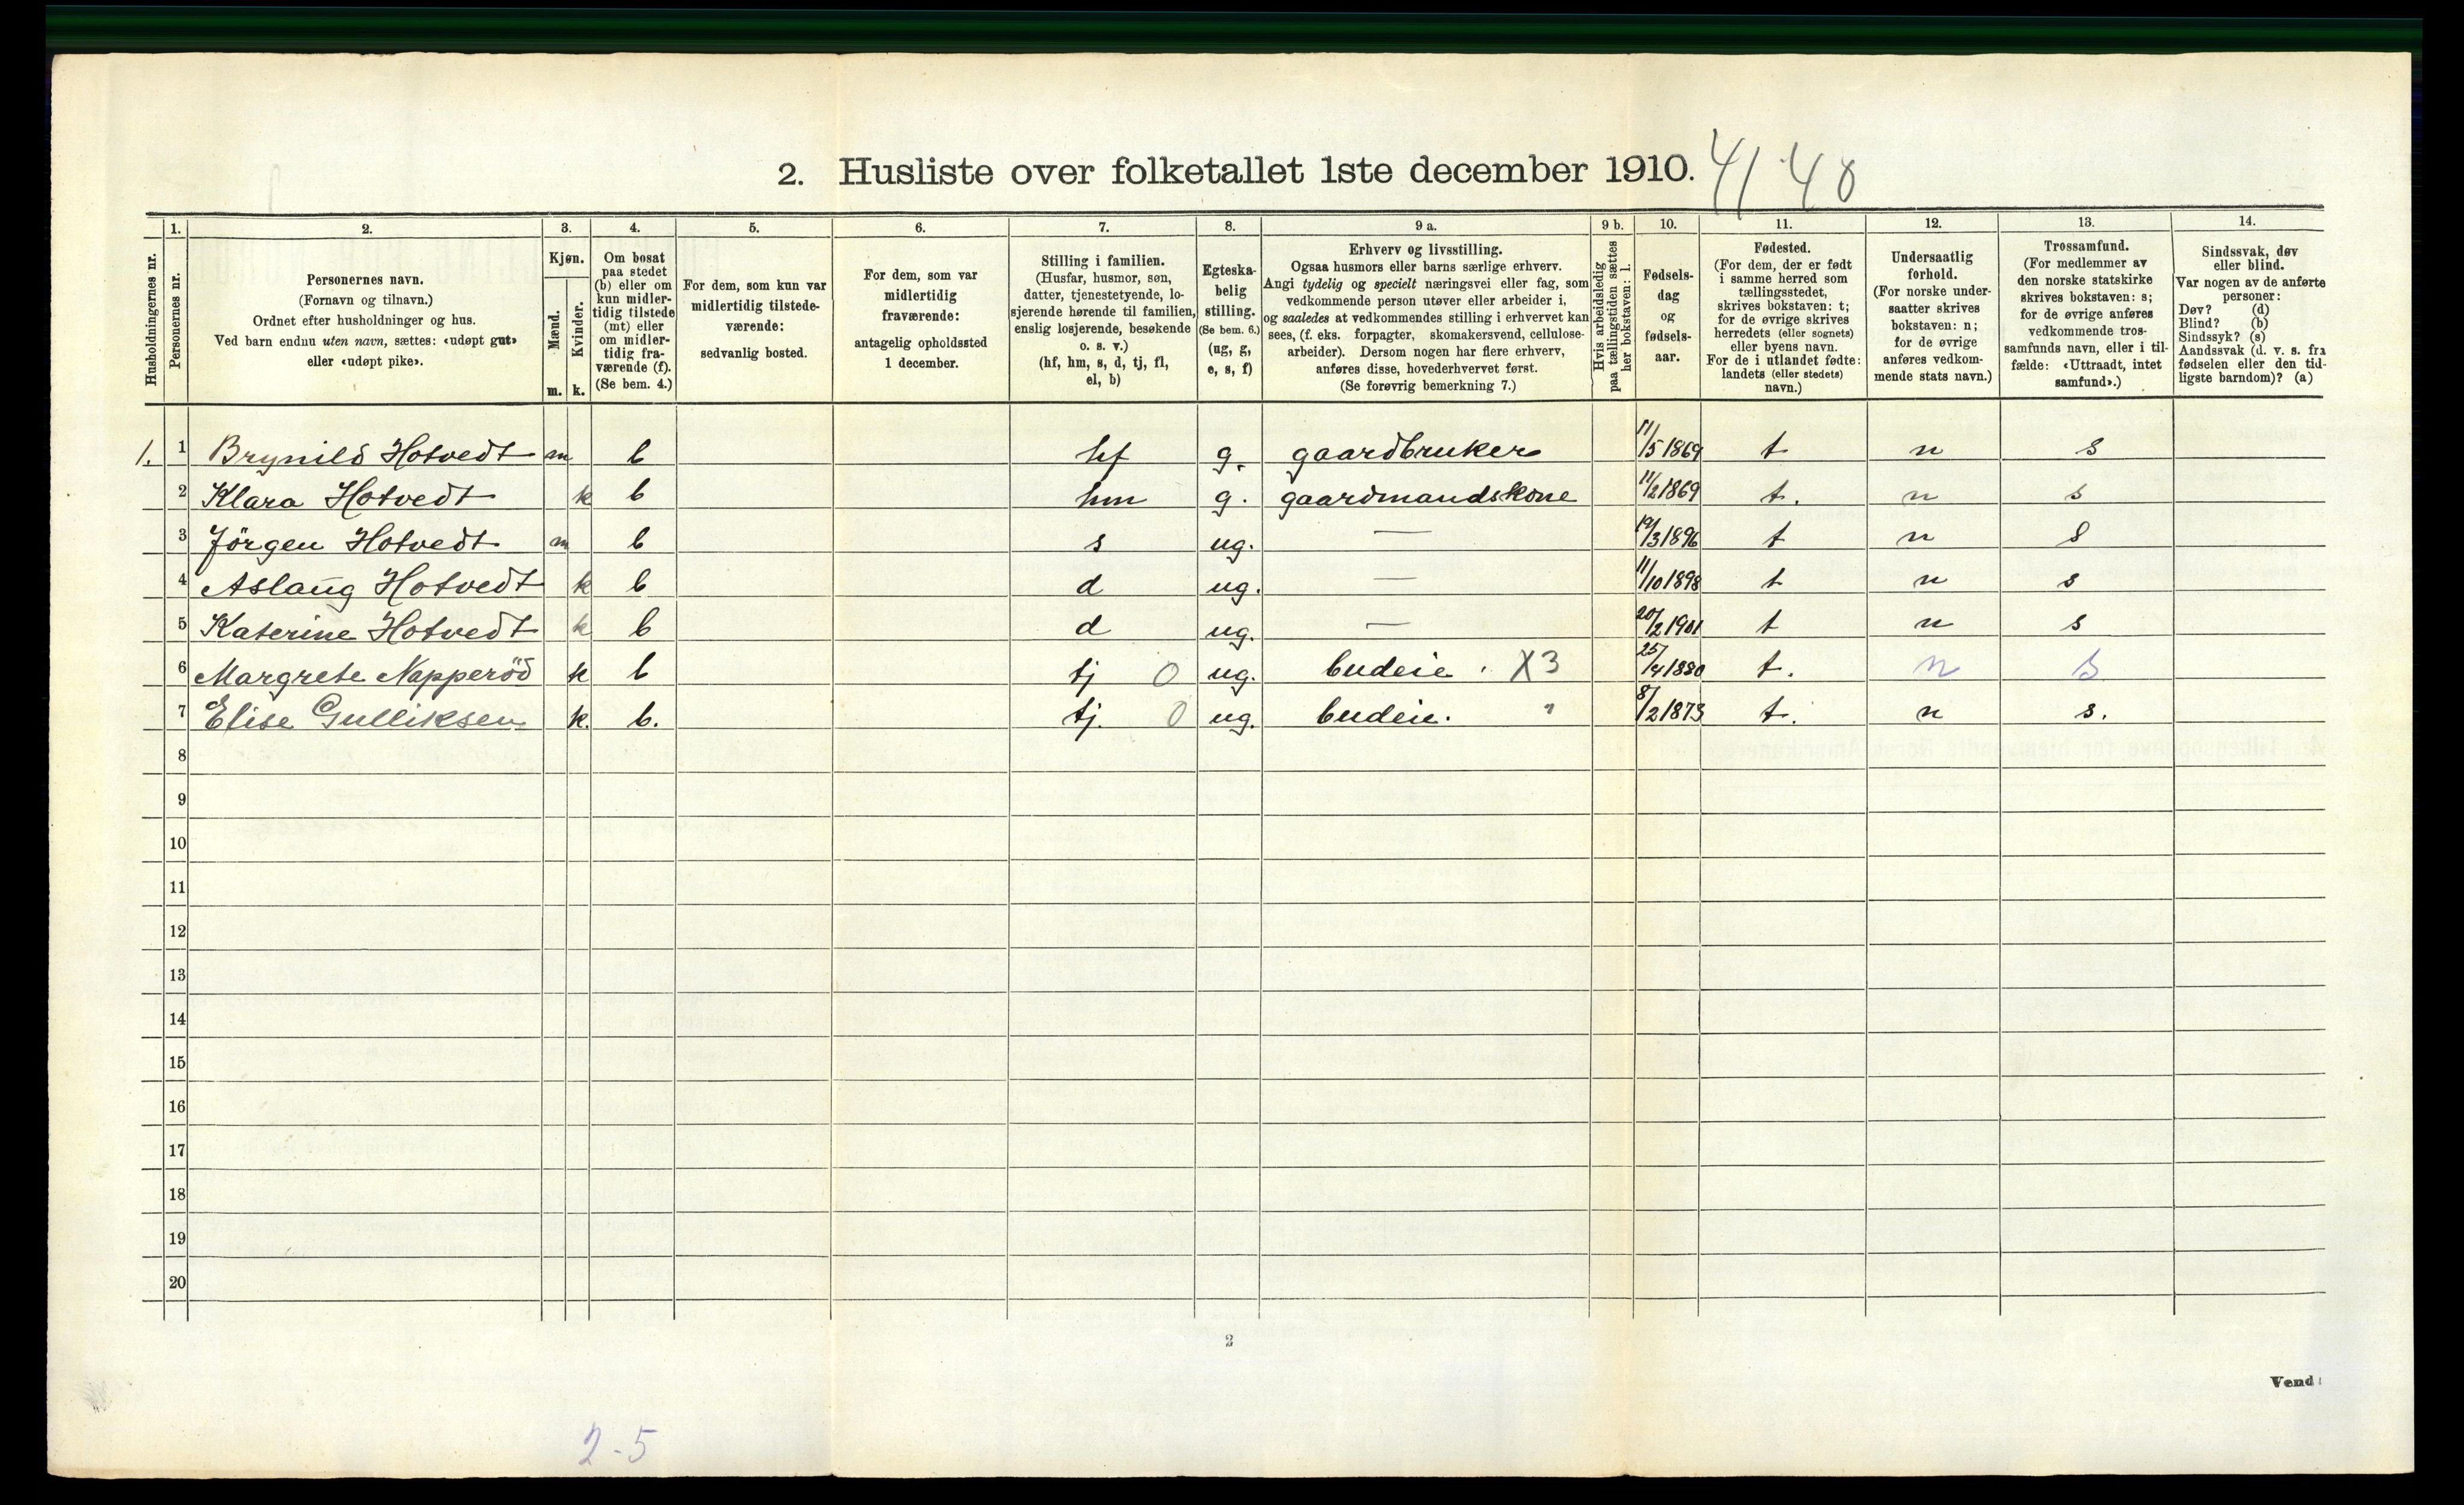 2. Husliste over folketallet 1ste december 1910. 41 40
Husholdningernes nr.
1.
Personernes nr.
2.
Personernes navn.
(Fornavn og tilnavn.)
Ordnet efter husholdninger og hus.
Ved barn endnu uten navn, sættes: «udøpt gut»
eller «udøpt pike».
3.
Kjøn.
Mænd.
Kvinder.
m. k.
4.
Om bosat
paa stedet
(b) eller om
kun midler-
tidig tilstede
(mt) eller
om midler-
tidig fra-
værende (f).
(Se bem. 4.)
5.
For dem, som kun var
midlertidig tilstede-
værende:
sedvanlig bosted.
6.
For dem, som var
midlertidig
fraværende:
antagelig opholdssted
1 december.
7.
Stilling i familien.
(Husfar, husmor, søn,
datter, tjenestetyende, lo-
sjerende hørende til familien,
enslig losjerende, besøkende
o. s. v.)
(hf, hm, s, d, tj, fl,
el, b)
8.
Egteska-
belig
stilling.
(Se bem. 6.)
(ug, g,
e, s, f)
9 a.
Erhverv og livsstilling.
Ogsaa husmors eller barns særlige erhverv.
Angi tydelig og specielt næringsvei eller fag, som
vedkommende person utøver eller arbeider i,
og saaledes at vedkommendes stilling i erhvervet kan
sees, (f. eks. forpagter, skomakersvend, cellulose-
arbeider). Dersom nogen har flere erhverv,
anføres disse, hovederhvervet først.
(Se forøvrig bemerkning 7.)
9 b.
Hvis arbeidsledig
paa tællingstiden sættes
her bokstaven: l.
10.
Fødsels-
dag
og
fødsels-
aar.
11.
Fødested.
(For dem, der er født
i samme herred som
tællingsstedet,
skrives bokstaven: t;
for de øvrige skrives
herredets (eller sognets)
eller byens navn.
For de i utlandet fødte:
landets (eller stedets)
navn.)
12.
Undersaatlig
forhold.
(For norske under-
saatter skrives
bokstaven: n;
for de øvrige
anføres vedkom-
mende stats navn.)
13.
Trossamfund.
(For medlemmer av
den norske statskirke
skrives bokstaven: s;
for de øvrige anføres
vedkommende tros-
samfunds navn, eller i til-
fælde: «Uttraadt, intet
samfund».)
14.
Sindssvak, døv
eller blind.
Var nogen av de anførte
personer:
Døv? (d)
Blind? (b)
Sindssyk? (s)
Aandssvak (d. v. s. fra
fødselen eller den tid-
ligste barndom)? (a)
1. 1 Brynild Hotvedt m b hf g. gaardbruker 11/5 1869 t n s
2 Klara Hotvedt k b hm g. gaardmandskone 11/2 1869 t. n s
3 Jörgen Hotvedt m b s ug. — 19/3 1896 t n s
4 Aslaug Hotvedt k b d ug. — 11/10 1898 t n s
5 Katerine Hotvedt k b d ug. — 20/2 1901 t n s
6 Margrete Napperöd k b tj 0 ug. budeie X3 25/4 1880 t. n s
7 Elise Gulliksen k. b. tj. 0 ug. budeie. " 8/2 1873 t. n s.
8
9
10
11
12
13
14
15
16
17
18
19
20
2
Vend
2-5